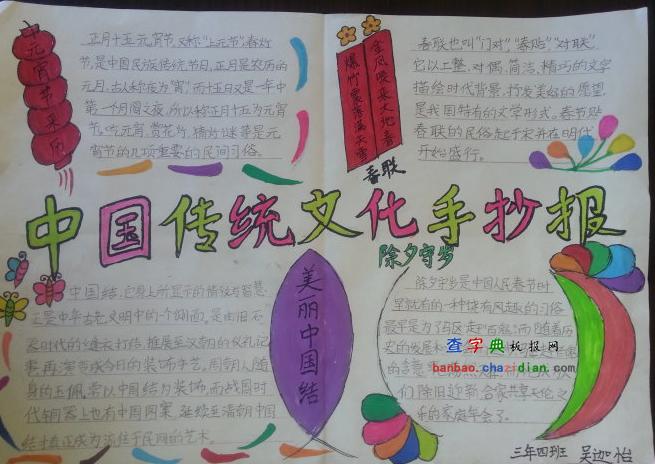 元宵节来历
正月十五元宵节,又称"上元节",春灯
节,是中国民族传统节日。正月是农历的
元月,古人称夜为"宵",而十五日是一年中
第一个月圆之夜,所以称正月十五为元宵
节。吃元宵、赏花灯、猜灯谜等是元
宵节的几项重要的民间习俗。
金鸡唤来大地春
爆竹震落满天雪
春联
春联也叫"门对"、"春贴"、"对联",
它以工整、对偶、简洁、精巧的文字
描绘时代背景,抒发美好的愿望,
是我国特有的文学形式。春节贴
春联的民俗起于宋并在明代
开始盛行。
中国传统文化手抄报
除夕守岁
中国结,它身上所显示的情致与智慧
正是中华古老文明中的一个侧面。是由旧石
器时代的缝衣打结,推展至汉朝的仪礼记
事,再演变成今日的装饰手艺。周朝人随
身的玉佩常以中国结为装饰,而战国时
代铜器上也有中国结图案,延续至清朝中国
结才真正成为流传于民间的艺术。
美丽中国结
除夕守岁是中国人民春节时
早就有的一种富有风趣的习俗
最早是为了
历
史的发展
的含意
们除旧迎新,合家共享天伦之
乐的家庭年会了。
查字典板报网
banbao.chazidian.com
三年四班 吴迦怡